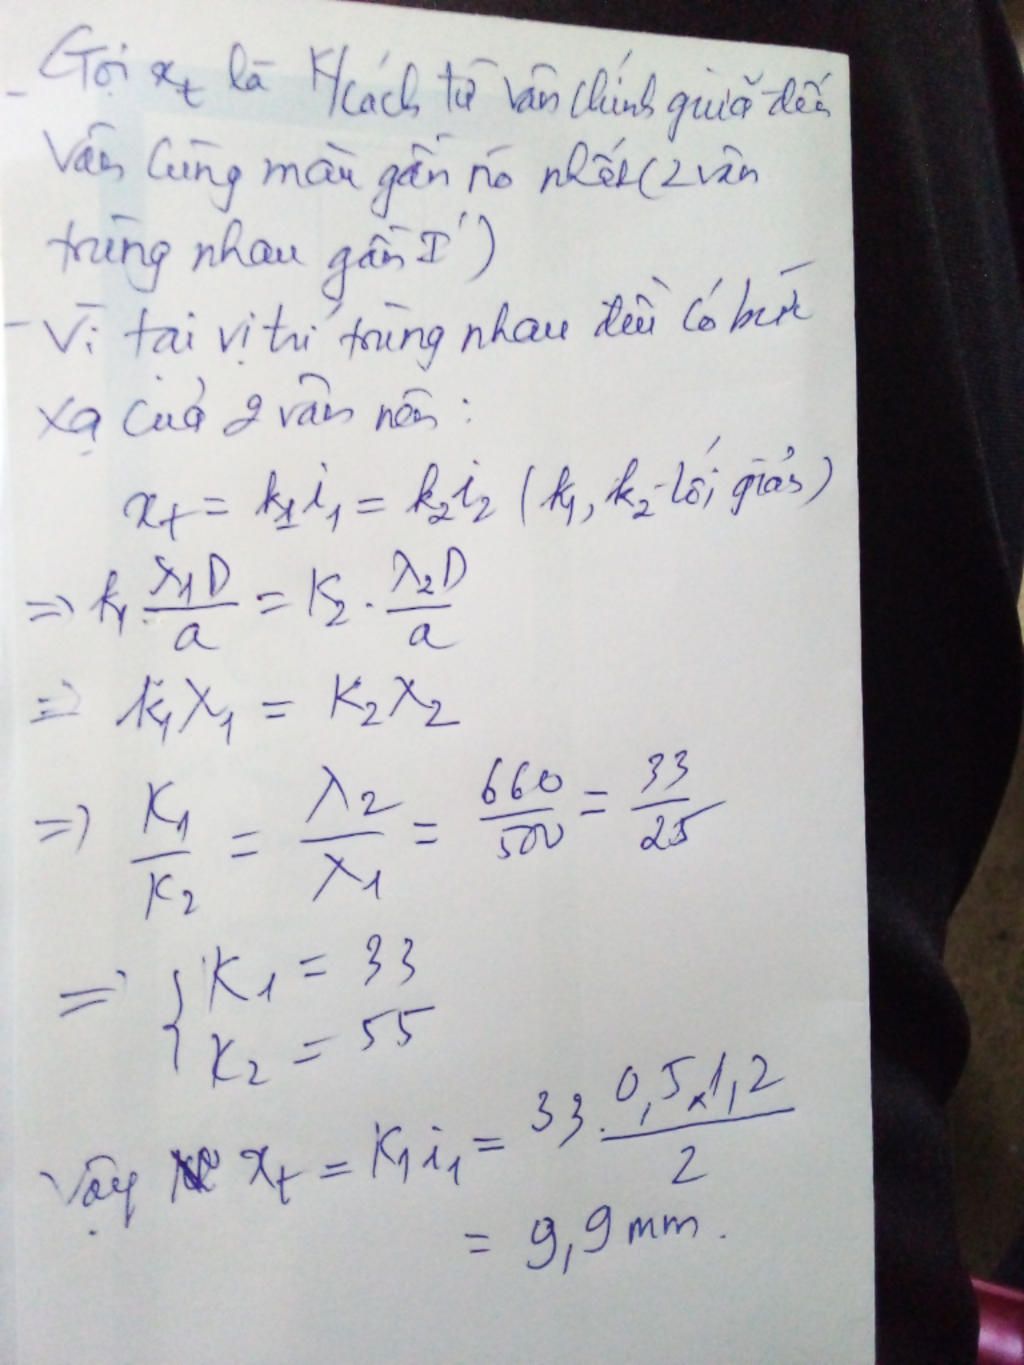 - Gọi xₜ là K/cách từ vân chính giữa đến
vân cùng màu gần nó nhất (2 vân
trùng nhau gần I')
- Vì tại vị trí trùng nhau đều có bức
xạ của 2 vân nên:
xₜ = k₁i₁ = k₂i₂ (k₁, k₂ - tối giản)
=> k₁ . λ₁D/a = K₂ . λ₂D/a
=> k₁λ₁ = K₂λ₂
=> K₁/K₂ = λ₂/λ₁ = 660/500 = 33/25
=> { K₁ = 33
K₂ = 55
Vậy xₜ = K₁i₁ = 33 . 0,5 x 1,2 / 2
= 9,9 mm.